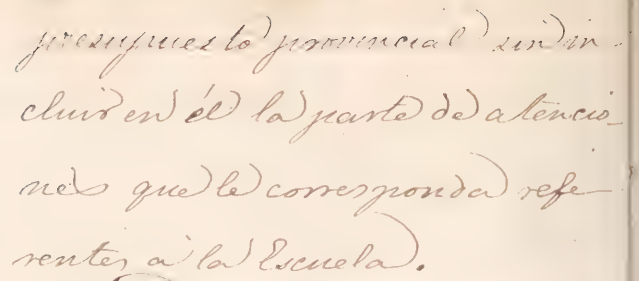 presupuesto provincial sin in-
cluir en él la parte de atencio-
nes que le corresponda refe-
rentes à la Escuela.